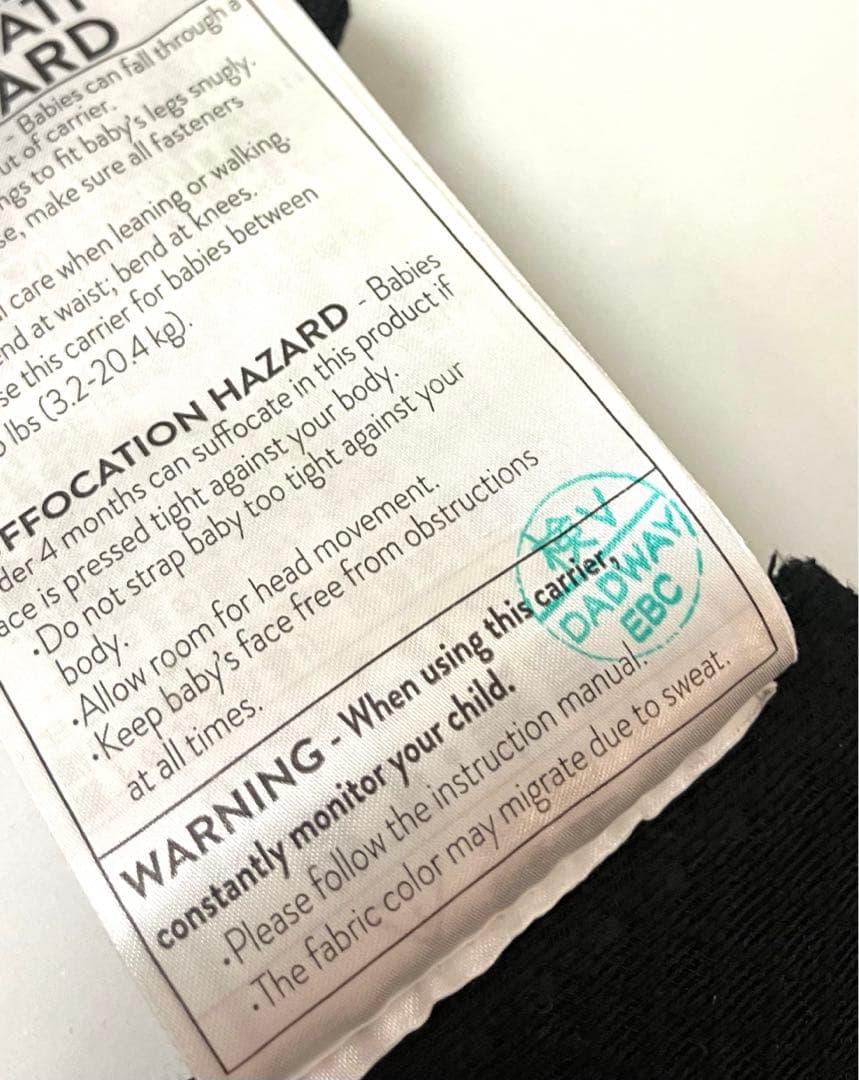 ARD
- Babies can fall through a
ut of carrier.
ngs to fit baby's legs snugly.
se, make sure all fasteners
l care when leaning or walking.
end at waist; bend at knees.
se this carrier for babies between
lbs (3.2-20.4 kg).
FFOCATION HAZARD - Babies
der 4 months can suffocate in this product if
ace is pressed tight against your body.
•Do not strap baby too tight against your
body.
•Allow room for head movement.
•Keep baby's face free from obstructions
at all times.
検V
DADWAY
EBC
WARNING - When using this carrier,
constantly monitor your child.
•Please follow the instruction manual.
•The fabric color may migrate due to sweat.